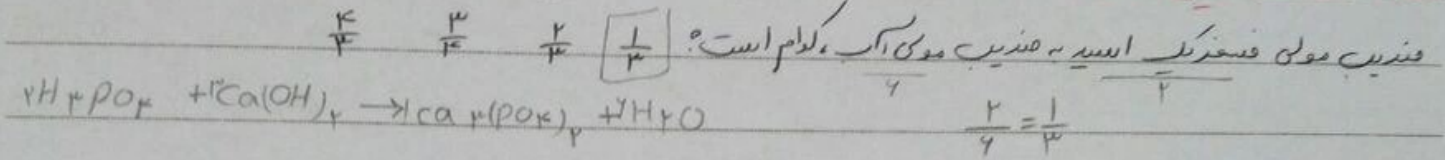 ضریب مولی فسفریک اسید به ضریب مولی آب، کدام است؟ ۱/۳ ۲/۳ ۳/۴ ۴/۳
۲ ۶
۲H۳PO۴ + ۳Ca(OH)۲ → ۱Ca۳(PO۴)۲ + ۶H۲O ۲/۶ = ۱/۳